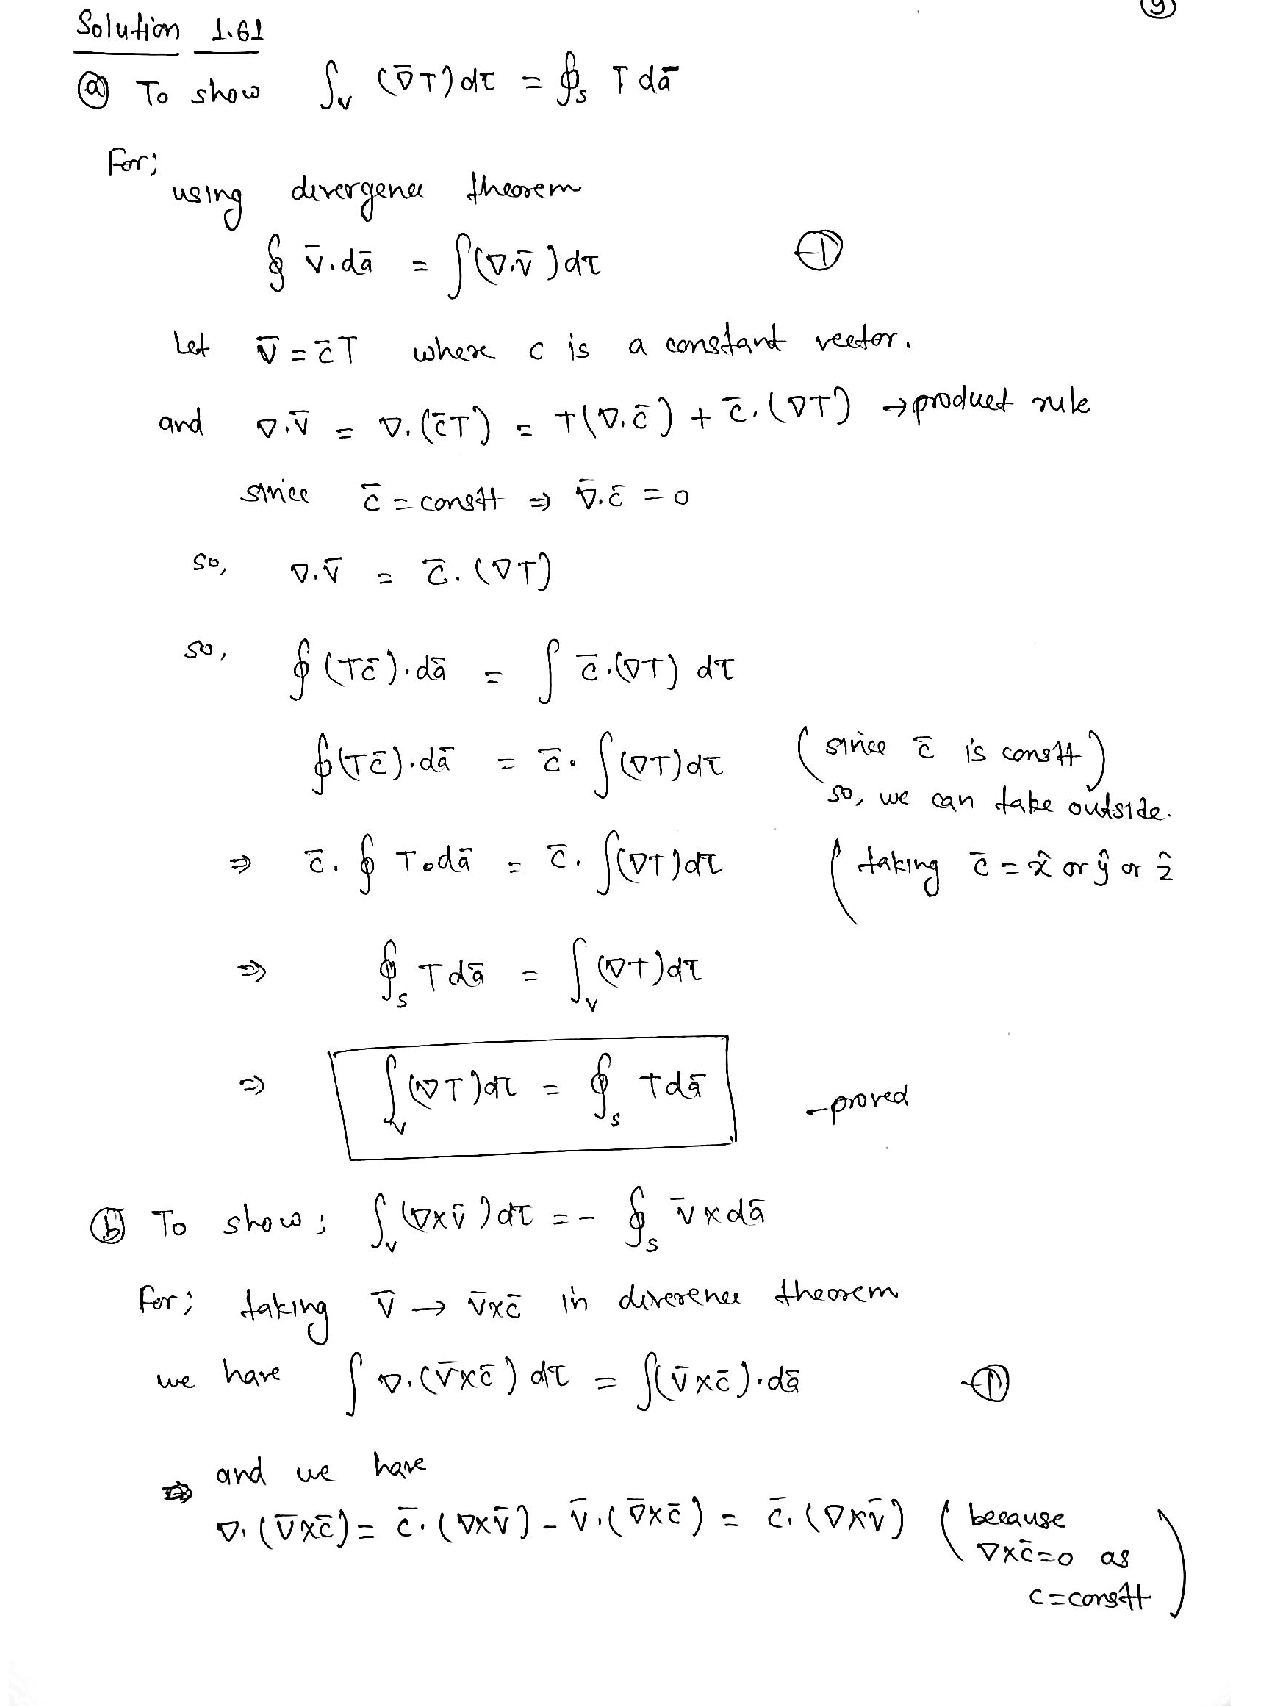 (9)
Solution 1.61
(a) To show ∫_V (∇̄T)dτ = ∮_S T dā
For;
using divergence theorem
∮ v̄.dā = ∫(∇.v̄)dτ —(1)
Let v̄ = c̄T where c is a constant vector.
and ∇.v̄ = ∇.(c̄T) = T(∇.c̄) + c̄.(∇T) → product rule
since c̄ = constt ⇒ ∇̄.c̄ = 0
so, ∇.v̄ = c̄.(∇T)
so, ∮(Tc̄).dā = ∫ c̄.(∇T) dτ
∮(Tc̄).dā = c̄.∫(∇T)dτ (since c̄ is constt)
so, we can take outside.
⇒ c̄.∮ T.dā = c̄.∫(∇T)dτ (taking c̄ = x̂ or ŷ or ẑ
⇒ ∮_S T dā = ∫_V (∇T)dτ
⇒ ∫_V (∇T)dτ = ∮_S T dā - proved
(b) To show; ∫_V (∇×v̄)dτ = - ∮_S v̄×dā
for; taking v̄ → v̄×c̄ in diverence theorem
we have ∫ ∇.(v̄×c̄) dτ = ∫(v̄×c̄).dā —(1)
and we have
⇒ ∇.(v̄×c̄) = c̄.(∇×v̄) - v̄.(∇̄×c̄) = c̄.(∇×v̄) (because
∇×c̄=0 as
c=constt)